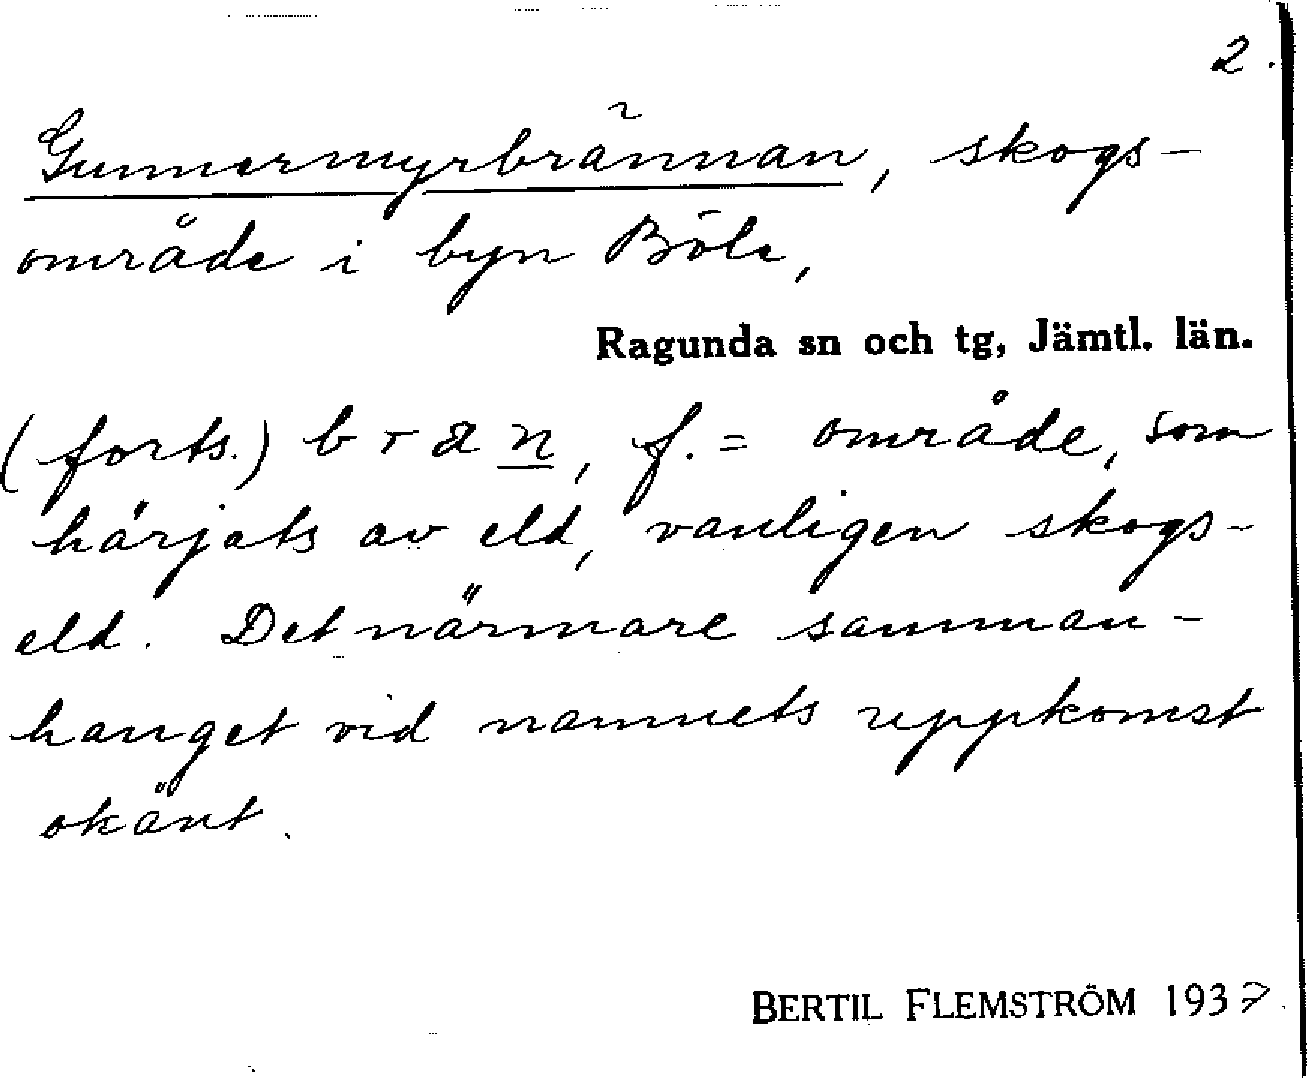 2.
Gunnarmyrbrännan, skogs-
område i byn Böle,
Ragunda sn och tg, Jämtl. län.
(forts.) b r a n, f. = område, som
härjats av eld, vanligen skogs-
eld. Det närmare samman-
hanget vid namnets uppkomst
okänt.
BERTIL FLEMSTRÖM 1937